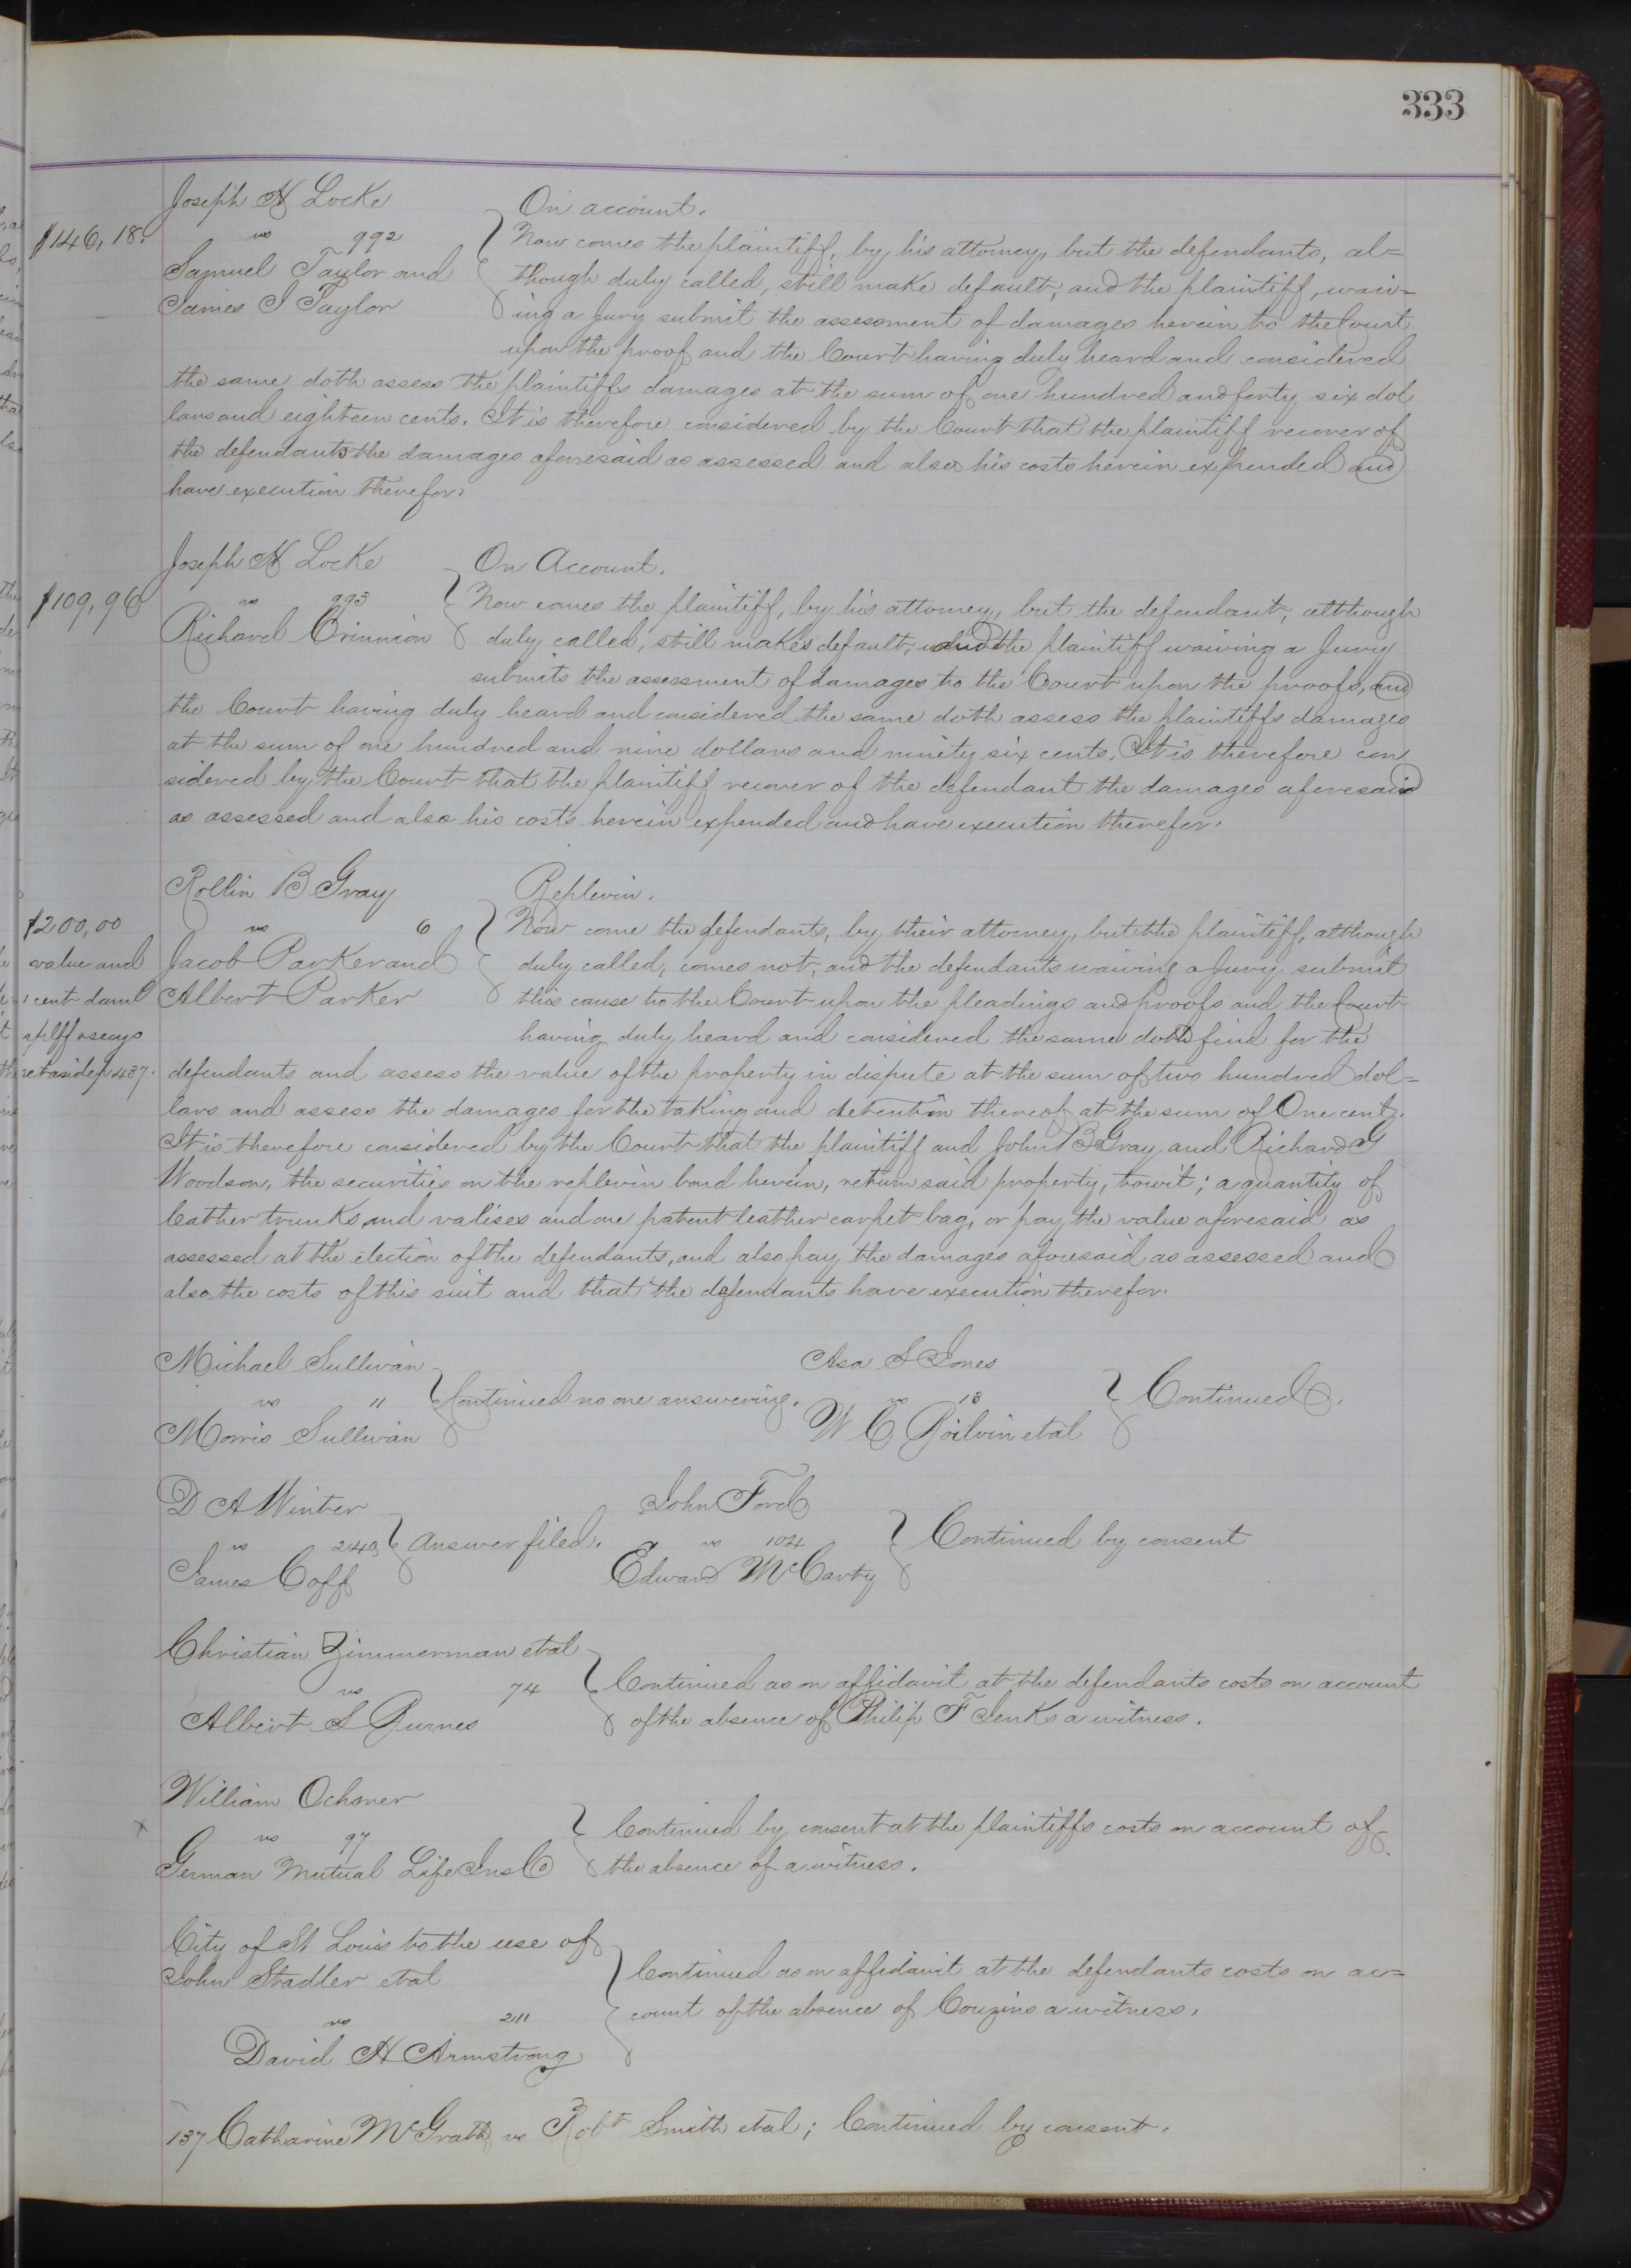 333
Joseph N Locke
$146,18.
vs 992
Samuel Taylor and
James I Taylor
On account.
Now comes the plaintiff, by his attorney, but the defendants, al=
though duly called, still make default, and the plaintiff, waiv=
ing a Jury submit the assessment of damages herein to the Court
upon the proof and the Court having duly heard and considered
the same doth assess the plaintiffs damages at the sum of one hundred and forty six dol
lars and eighteen cents. It is therefore considered by the Court that the plaintiff recover of
the defendants the damages aforesaid as assessed and also his costs herein expended and
have execution therefor.
Joseph N Locke
$109,96
vs 993
Richard Crinnion
On Account.
Now comes the plaintiff, by his attorney, but the defendant, although
duly called, still makes default, and the plaintiff waiving a Jury
submits the assessment of damages to the Court upon the proofs, and
the Court having duly heard and considered the same doth assess the plaintiffs damages
at the sum of one hundred and nine dollars and ninety six cents. It is therefore con
sidered by the Court that the plaintiff recover of the defendant the damages aforesaid
as assessed and also his costs herein expended and have execution therefor.
Rollin B Gray
vs 6
Jacob Parker and
Albert Parker
$200,00
value and
1 cent daml
set aside p 437.
Replevin.
Now come the defendants, by their attorney, but the plaintiff, although
duly called, comes not, and the defendants waiving a Jury submit
this cause to the Court upon the pleadings and proofs and the Court
having duly heard and considered the same doth find for the
defendants and assess the value of the property in dispute at the sum of two hundred dol=
lars and assess the damages for the taking and detention thereof at the sum of One cent.
It is therefore considered by the Court that the plaintiff and John B Gray and Richard G
Woodson, the securities on the replevin bond herein, return said property, towit; a quantity of
leather trunks and valises and one patent leather carpet bag, or pay the value aforesaid as
assessed at the election of the defendants, and also pay the damages aforesaid as assessed and
also the costs of this suit and that the defendants have execution therefor.
Michael Sullivan
vs 11
Morris Sullivan
Continued no one answering.
Asa S Jones
vs 13
W C Boilvin etal
Continued.
D A Winter
vs 240
James Goff
Answer filed.
John Ford
vs 104
Edward McCarty
Continued by consent
Christian Zimmerman etal
vs 74
Albert S Burnes
Continued as on affidavit at the defendants costs on account
of the absence of Philip F Jenks a witness.
William Ochsner
vs 97
German Mutual Life Ins Co
Continued by consent at the plaintiffs costs on account of
the absence of a witness.
City of St Louis to the use of
John Stadler etal
vs 211
David H Armstrong
Continued as on affidavit at the defendants costs on ac=
count of the absence of Couzins a witness.
137 Catharine McGrath vs Robt Smith etal; Continued by consent.